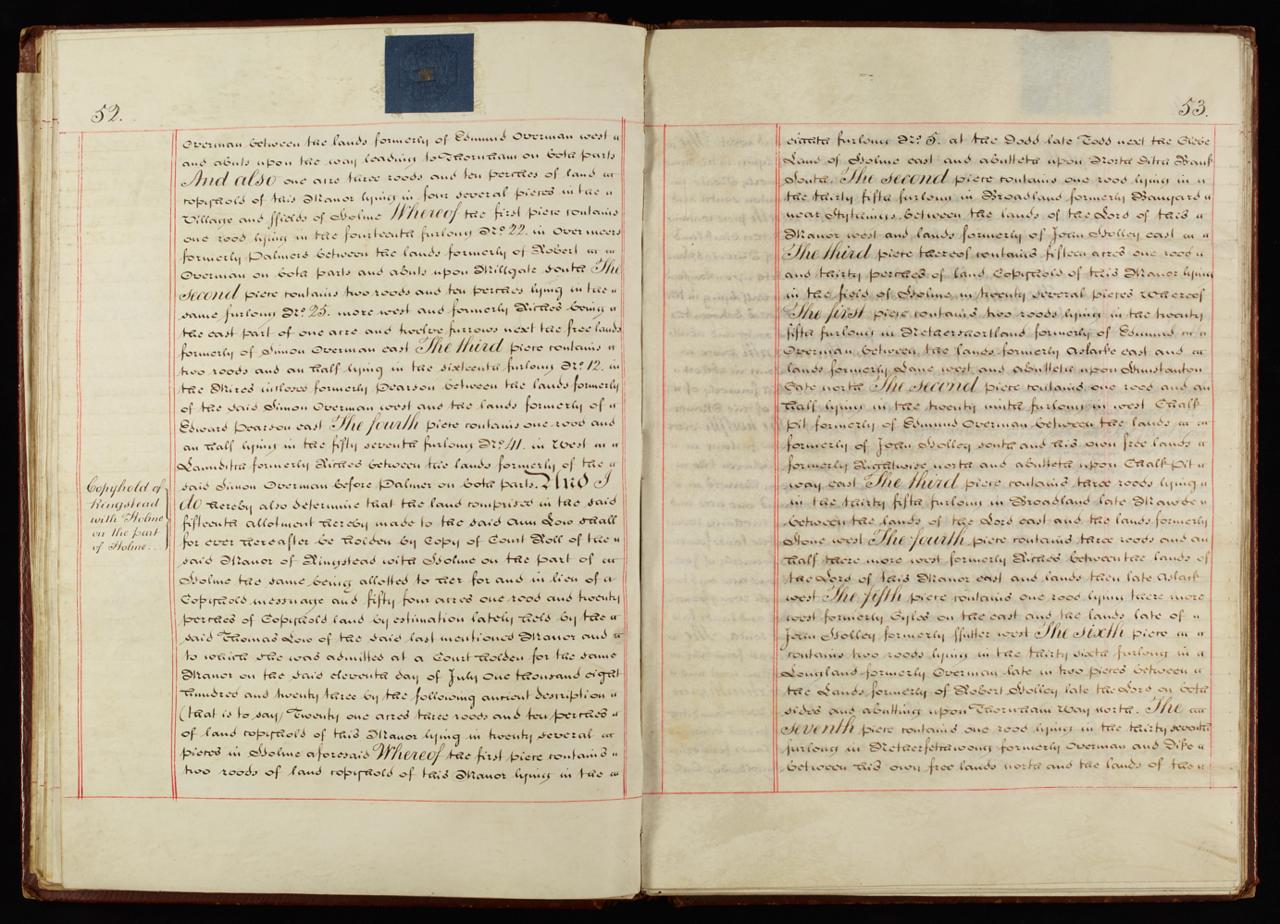 52.
Overman between the lands formerly of Edmund Overman west
and abuts upon the way leading to Thornham on both parts
And also one acre three roods and ten perches of land
copyhold of this Manor lying in four several pieces in the
Village and ffields of Holme Whereof the first piece contains
one rood lying in the fourteenth furlong No. 22. in Overmeers
formerly Palmers between the lands formerly of Robert
Overman on both parts and abuts upon Millgate south The
second piece contains two roods and ten perches lying in the
same furlong No. 25. more west and formerly Riches being
the east part of one acre and twelve furrows next the free lands
formerly of Simon Overman east The third piece contains
two roods and an half lying in the sixteenth furlong No. 12. in
the Mires inclose formerly Pearson between the lands formerly
of the said Simon Overman west and the lands formerly of
Edward Pearson east The fourth piece contains one rood and
an half lying in the fifty seventh furlong No. 41. in West
Laundith formerly Riches between the lands formerly of the
said Simon Overman before Palmer on both parts. And I
Copyhold of
Ringstead
with Holme
on the part
of Holme
do hereby also determine that the land comprised in the said
fifteenth allotment hereby made to the said Ann Low shall
for ever hereafter be holden by Copy of Court Roll of the
said Manor of Ringstead with Holme on the part of
Holme the same being allotted to her for and in lieu of a
Copyhold messuage and fifty four acres one rood and twenty
perches of Copyhold land by estimation lately held by the
said Thomas Low of the said last mentioned Manor and
to which she was admitted at a Court holden for the same
Manor on the said eleventh day of July One thousand eight
hundred and twenty three by the following ancient description
(that is to say) Twenty one acres three roods and ten perches
of land copyhold of this Manor lying in twenty several
pieces in Holme aforesaid Whereof the first piece contains
two roods of land copyhold of this Manor lying in the
53.
eighth furlong No. 5. at the Dodd late Todd next the Glebe
Land of Holme east and abutteth upon North Ditch Bank
South. The second piece contains one rood lying in
the thirty fifth furlong in Broadland formerly Banyard
near between the lands of the Lord of this
Manor west and lands formerly of John Holley east
The third piece thereof contains fifteen acres one rood
and thirty perches of land Copyhold of this Manor lying
in the field of Holme in twenty several pieces Whereof
The first piece contains two roods lying in the twenty
fifth furlong in Nethershortland formerly of Edmund
Overman between the lands formerly Aslacke east and
lands formerly Lane west and abutteth upon Hunstanton
Gate north The second piece contains one rood and an
half lying in the twenty ninth furlong in west Chalk
Pit formerly of Edmund Overman between the lands
formerly of John Holley south and his own free lands
formerly Rightwise north and abutteth upon Chalk Pit
way east The third piece contains three roods lying
in the thirty fifth furlong in Broadland late Mawde
between the lands of the Lord east and the lands formerly
Gone west The fourth piece contains three roods and an
half there more west formerly Riches between the lands of
the Lord of this Manor east and lands then late Aslack
west The fifth piece contains one rood lying there more
west formerly Gyles on the east and the lands late of
John Holley formerly ffuller west The sixth piece
contains two roods lying in the thirty sixth furlong in
Longland formerly Overman late in two pieces between
the Lands formerly of Robert Holley late the Lord on both
sides and abutting upon Thornham Way north. The
seventh piece contains one rood lying in the thirty seventh
furlong in formerly Overman and Dike
between his own free lands north and the lands of the